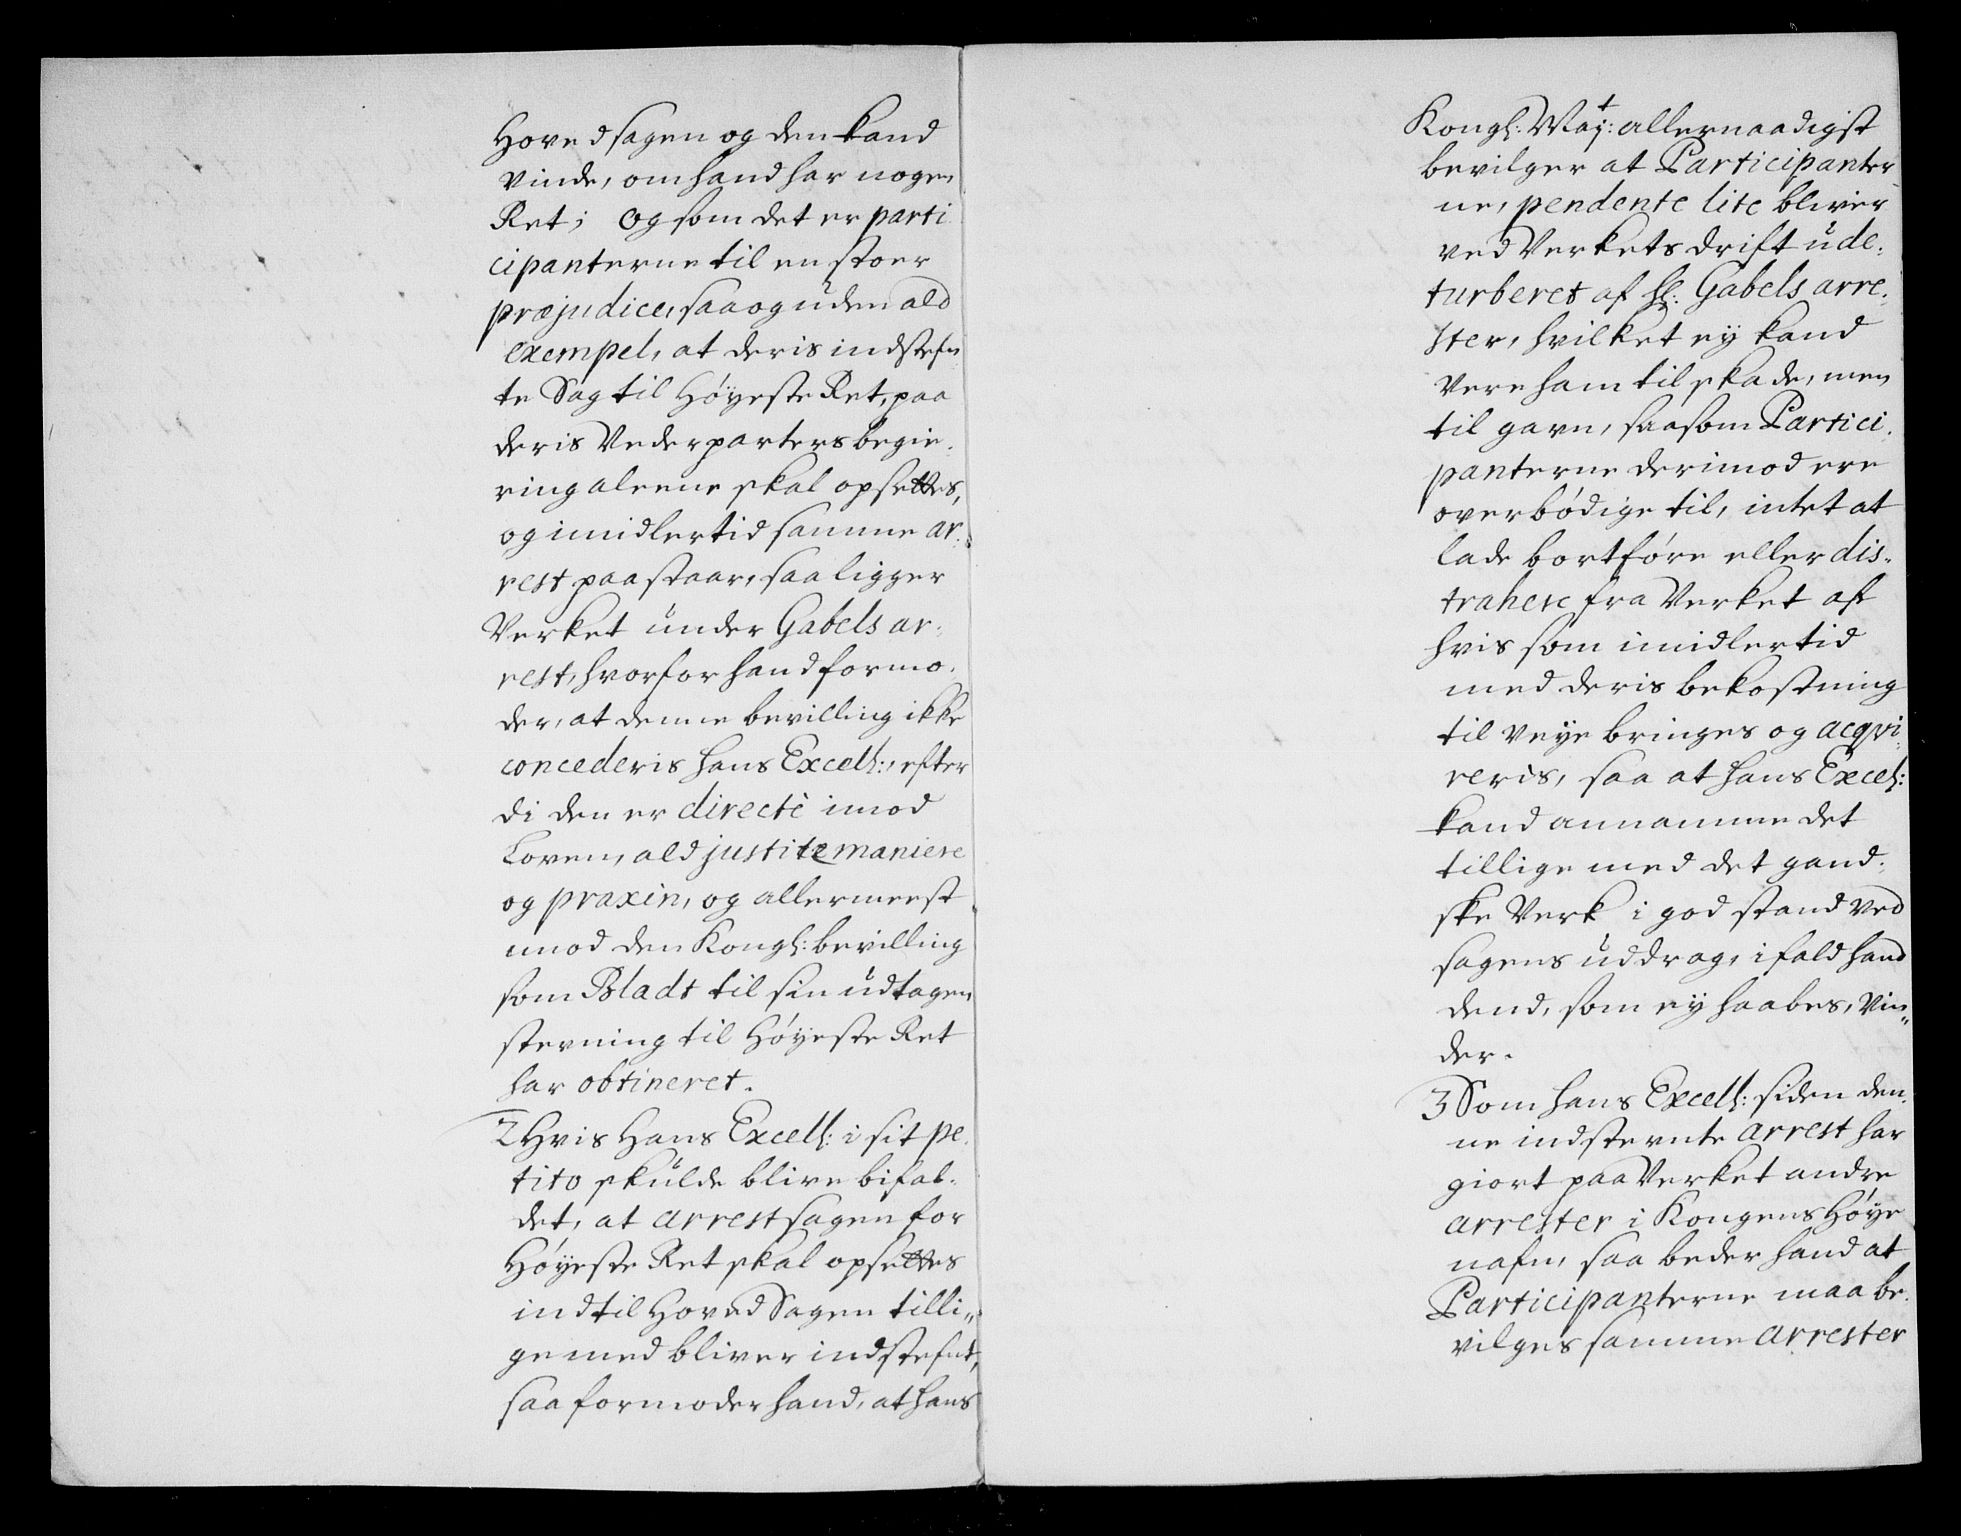 Hovedsagen og den kand
vinde, om hand har nogen
Ret; og som det er parti
cipanterne til en stoer
præjudice, saa og uden ald
exempel, at deris indstefn
te Sag til Høyeste Ret, paa
deris Vederparters begie.
ring aleene skal opsettes,
og imidlertid samme ar:
rest paastaar, saa ligger
Verket under Gabels ar:
rest, hvorfor hand formo.
der, at denne bevilling ikke
concederis hans Excell:, efter
di den er directè imod
Loven, ald justitz maniere
og praxin, og allermeest
imod den Kongl: bevilling
som Bladt til sin udtagen
stevning til Høyeste Ret
har obtineret.
2 Hvis Hans Excell: i sit pe.
tito skulde blive bifal.
det, at arrestsagen for
Høyeste Ret skal opsettes
indtil Hoved Sagen tilli„
ge med bliver indstefnt,
saa formoder hand, at hans
Kongl: May:t allernaadigst
bevilger at Participanter
ne, pendente lite bliver
ved Verkets drift ude:
turberet af Hl: Gabels arre.
ster, hvilket ey kand
vere ham til skade, men
til gavn, saasom Partici.
panterne derimod ere
overbødige til, intet at
lade bortføre eller dis.
trahere fra Verket af
hvis som imidlertid
med deris bekostning
til veye bringes og acqvi
reris, saa at hans Excel:
kand annamme det
tillige med det gand.
ske Verk i god stand ved
sagens uddrag, ifald hand
dend, som ey haabes, vin„
der.
3 Som hans Excell: siden den.
ne indstevnte arrest har
giort paa Verket andre
arrester i Kongens Høye
nafn, saa beder hand at
Participanterne maa be.
vilges samme arrester